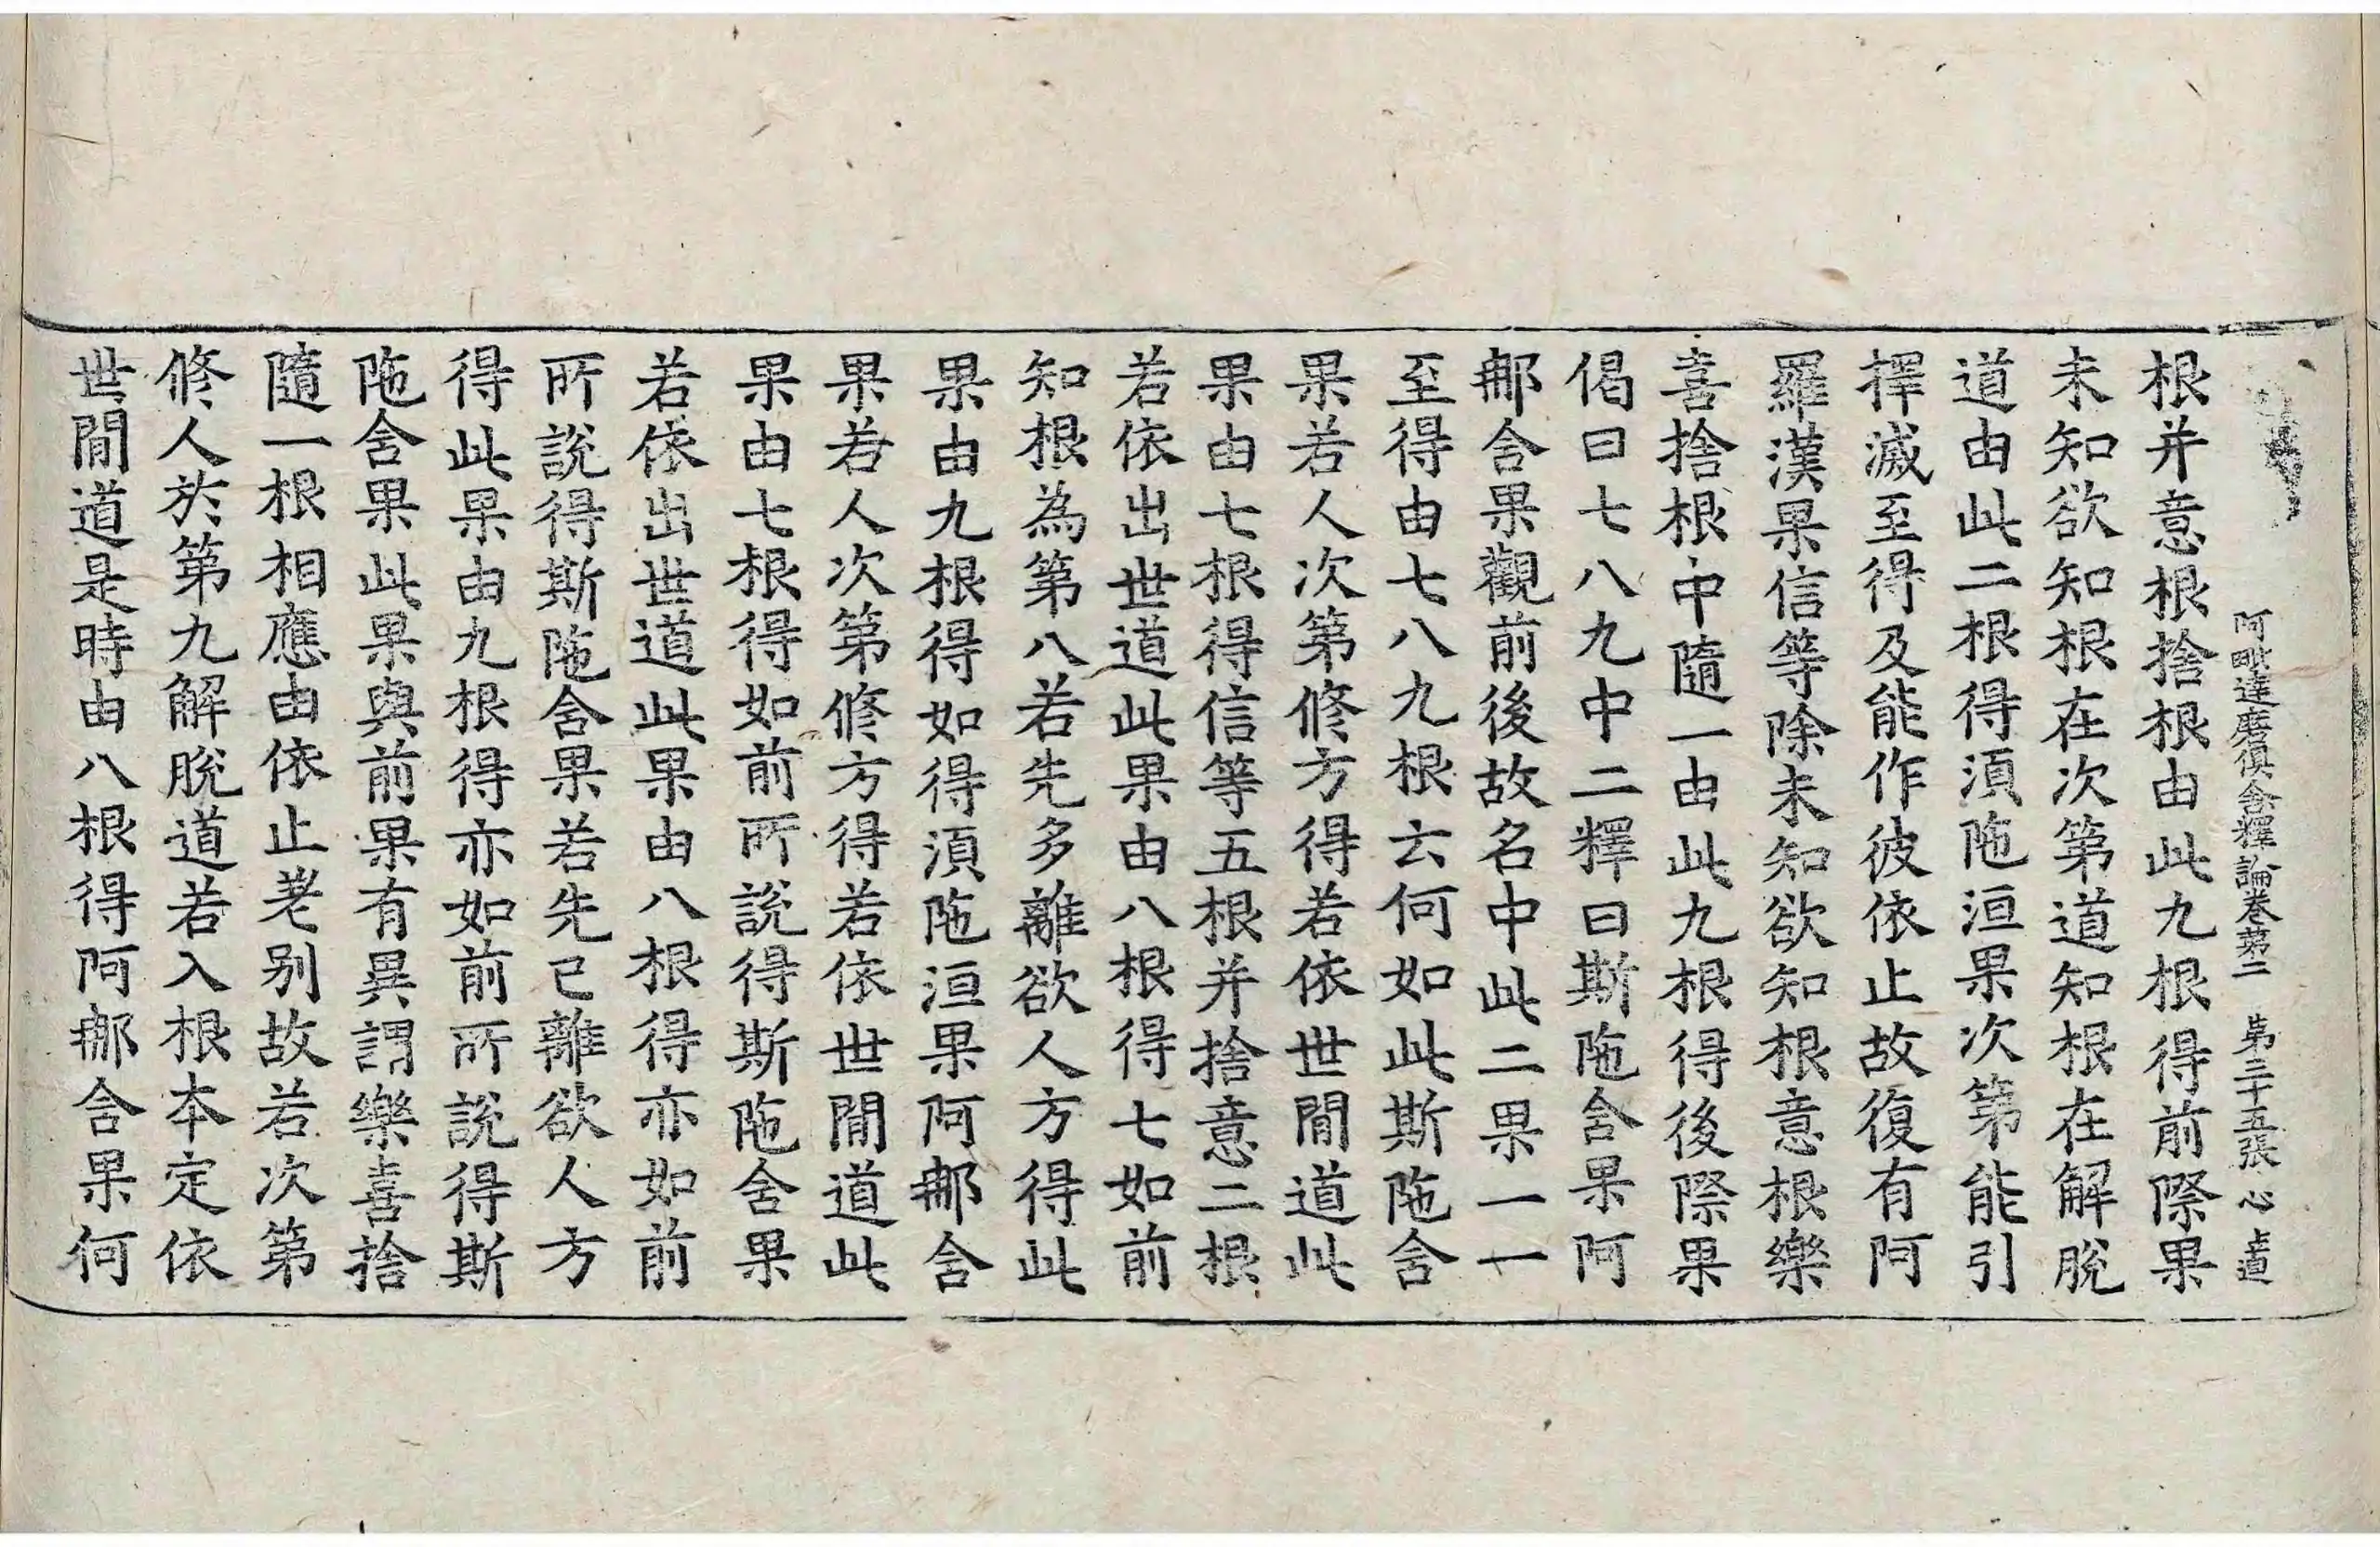 阿毗達磨俱舍釋論卷第二 第三十五張 心 上道
根并意根捨根由此九根得前際果
未知欲知根在次第道知根在解脫
道由此二根得湏陁洹果次第能引
擇滅至得及能作彼依止故復有阿
羅漢果信等除未知欲知根意根樂
喜捨根中隨一由此九根得後際果
偈曰七八九中二釋曰斯陁含果阿
郍含果觀前後故名中此二果一一
至得由七八九根云何如此斯陁含
果若人次第修方得若依世間道此
果由七根得信等五根并捨意二根
若依出世道此果由八根得七如前
知根為第八若先多離欲人方得此
果由九根得如得湏陁洹果阿郍含
果若人次第修方得若依世間道此
果由七根得如前所說得斯陁含果
若依出世道此果由八根得亦如前
所說得斯陁含果若先已離欲人方
得此果由九根得亦如前所說得斯
陁含果此果與前果有異謂樂喜捨
隨一根相應由依止差別故若次第
修人於第九解脫道若入根本定依
世間道是時由八根得阿郍含果何